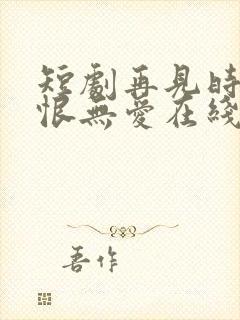 短劇再見時
恨無愛在綫
吾作